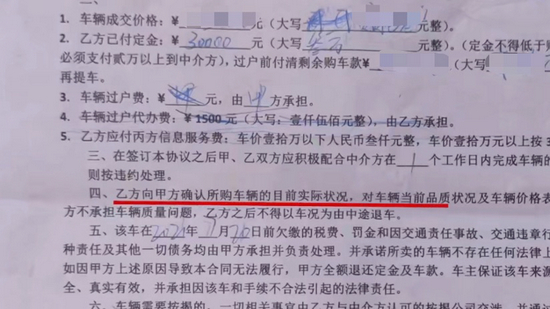 1. 车辆成交价格：￥ 元（大写 元整）.
2. 乙方已付定金：￥ 30000 元（大写： 元整）。（定金不得低于
必须支付贰万以上到中介方），过户前付清剩余购车款￥
再提车。
3. 车辆过户费：￥ 元，由 甲 方承担。
4. 车辆过户代办费：￥ 1500 元（大写：壹仟伍佰元整）。
5. 乙方应付丙方信息服务费：车价壹拾万以下人民币叁仟元整，车价壹拾万元以上按
三、在签订本协议之后甲、乙双方应积极配合中介方在 1 个工作日内完成车辆的
则按违约处理。
四、乙方向甲方确认所购车辆的目前实际状况，对车辆当前品质状况及车辆价格表
方不承担车辆质量问题，乙方之后不得以车况为由中途退车。
五、该车在 2021 年 7 月 20 日前欠缴的税费、罚金和因交通责任事故、交通违章行
种责任及其他一切债务均由甲方承担并负责处理。并承诺所卖的车辆不存在任何法律上
如因甲方上述原因导致本合同无法履行，甲方全额退还定金及车款。车主保证该车来源
全、真实有效，并承担因该车和手续不合法引起的法律责任。
六、车辆需要按揭的，一切相关事宜由乙方与中介方认可的按揭公司交涉，并通